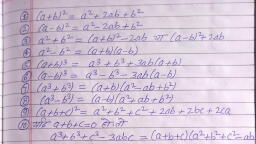 ① (a+b)² = a²+2ab+b²
② (a-b)² = a²-2ab+b²
③ a²+b² = (a+b)²-2ab या (a-b)²+2ab
④ a²-b² = (a+b)(a-b)
⑤ (a+b)³ = a³+b³+3ab(a+b)
⑥ (a-b)³ = a³-b³-3ab(a-b)
⑦ (a³+b³) = (a+b)(a²-ab+b²)
⑧ (a³-b³) = (a-b)(a²+ab+b²)
⑨ (a+b+c)² = a²+b²+c²+2ab+2bc+2ca
⑩ यदि a+b+c=0 हो तो
a³+b³+c³-3abc = (a+b+c)(a²+b²+c²-ab